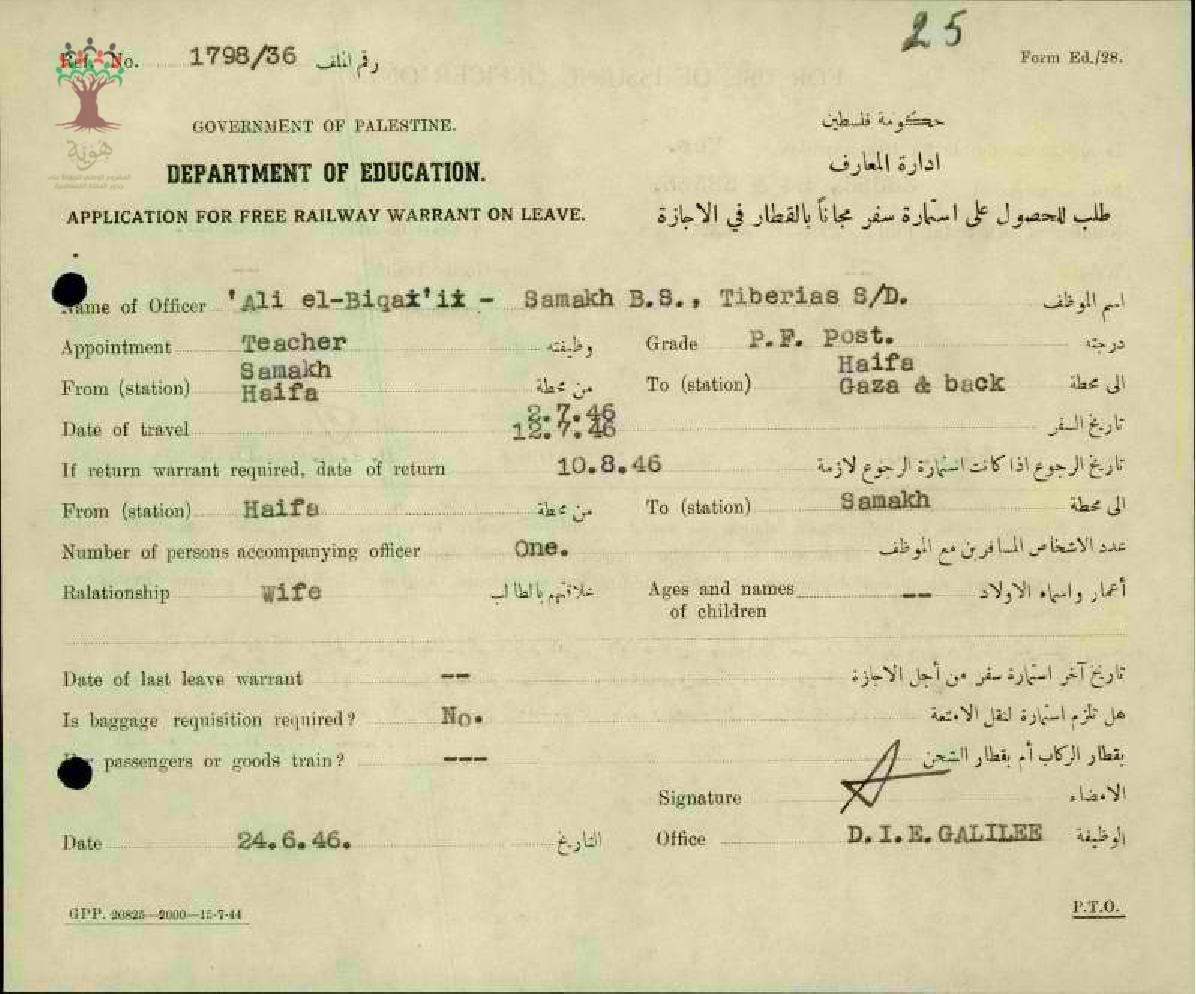 25
Ref. No. 1798/36 رقم الملف
Form Ed./28.
هوية
GOVERNMENT OF PALESTINE.
حكومة فلسطين
DEPARTMENT OF EDUCATION.
ادارة المعارف
APPLICATION FOR FREE RAILWAY WARRANT ON LEAVE.
طلب للحصول على استمارة سفر مجاناً بالقطار في الاجازة
Name of Officer 'Ali el-Biqai'ii - Samakh B.S., Tiberias S/D. اسم الموظف
Appointment Teacher وظيفته Grade P.F. Post. درجته
Samakh Haifa
From (station) Haifa من محطة To (station) Gaza & back الى محطة
2.7.46
Date of travel 12.7.46 تاريخ السفر
If return warrant required, date of return 10.8.46 تاريخ الرجوع اذا كانت استمارة الرجوع لازمة
From (station) Haifa من محطة To (station) Samakh الى محطة
Number of persons accompanying officer One. عدد الاشخاص المسافرين مع الموظف
Ralationship Wife علاقتهم بالطالب Ages and names -- أعمار واسماء الاولاد
of children
Date of last leave warrant -- تاريخ آخر استمارة سفر من أجل الاجازة
Is baggage requisition required? No. هل تلزم استمارة لنقل الامتعة
passengers or goods train? --- بقطار الركاب أم بقطار الشحن
Signature الامضاء
Date 24.6.46. التاريخ Office D.I.E.GALILEE الوظيفة
GPP. 20825—2000—15-7-44
P.T.O.